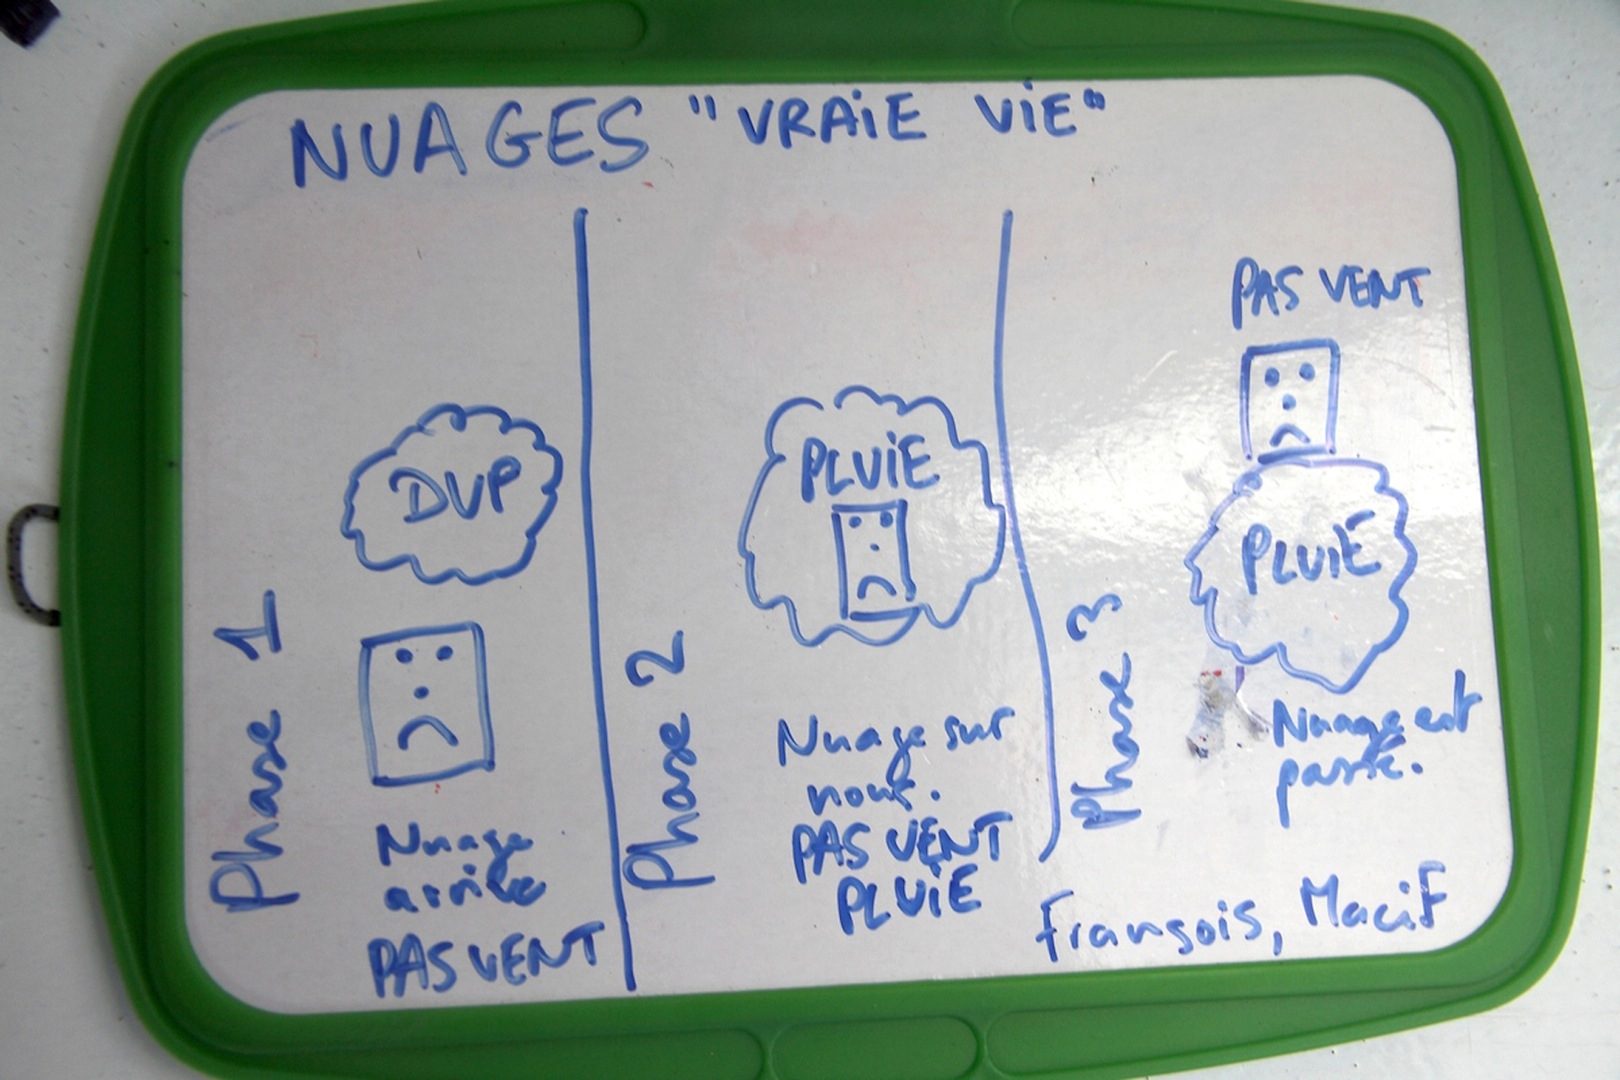 NUAGES "VRAIE VIE"
Phase 1
DVP
Nuage
arrive
PAS VENT
Phase 2
PLUIE
Nuage sur
nous.
PAS VENT
PLUIE
Phase 3
PAS VENT
PLUIE
Nuage est
passé.
François, Macif